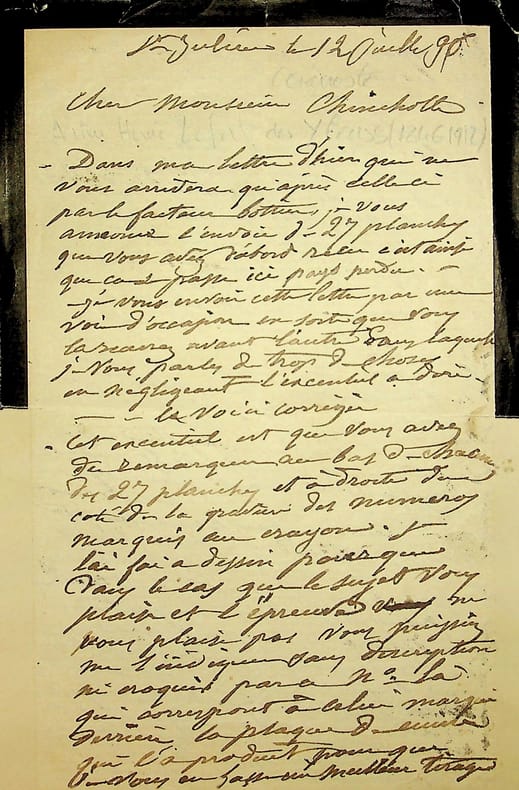 St Julien le 12 Juillet 95
Cher Monsieur Chincholle
- Dans ma lettre d'hier qui ne
vous arrivera qu'après celle ci
par le facteur bottier, je vous
annonce l'envoi de 27 planches
que vous avez d'abord reçu c'est ainsi
que ça se passe ici pays perdu. -
- je vous envoie cette lettre par une
voie d'occasion en sorte que vous
la recevrez avant l'autre dans laquelle
je vous parle de trop de choses
en négligeant l'excentiel a dire -
- - le voici corrigée
Cet excentiel est que vous avez
du remarquer au bas de chacune
des 27 planches et à droite du
coté de la gravure des numeros
marqués au crayon. Je
l'ai fai a dessin pour que
dans le cas que le sujet vous
plaise et l'épreuve ne
vous plaise pas vous puissiez
me l'indiquer sans description
ni croquis par ce No là
qui correspond à celui marqué
derrière la plaque de cuivre
qui l'a produit pour que
je vous en fasse un meilleur tirage